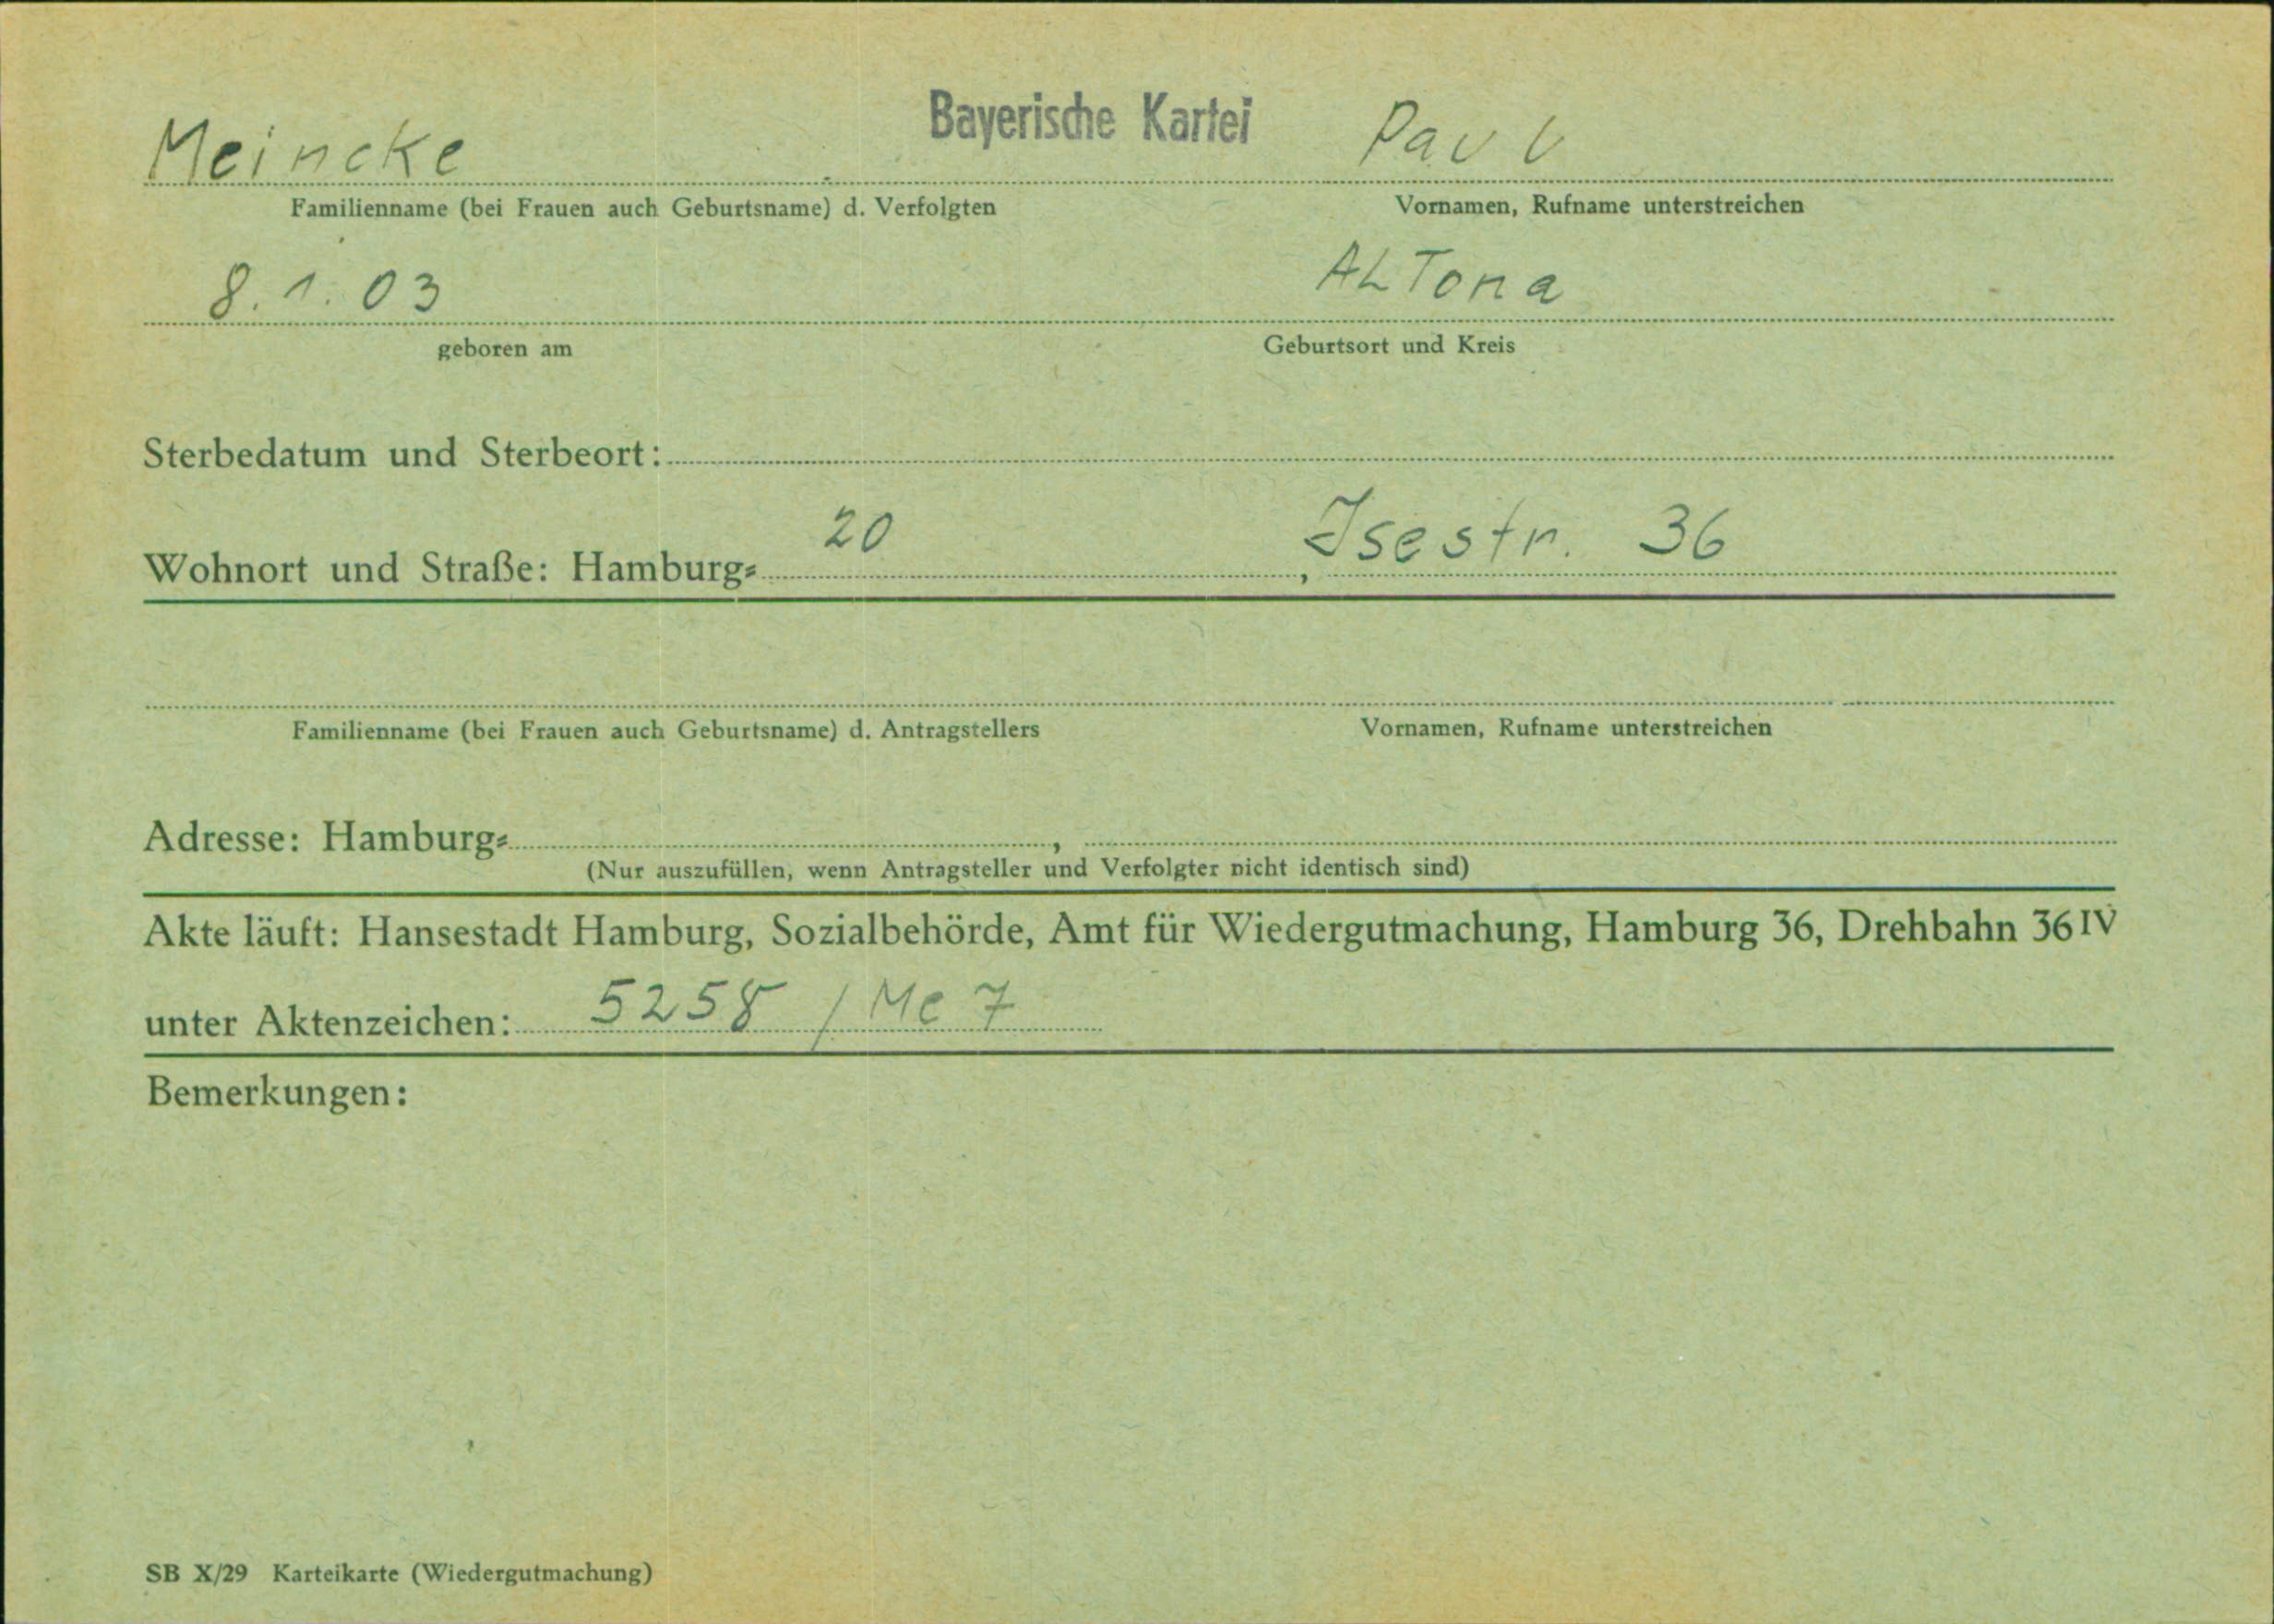 Bayerische Kartei
Meincke Paul
Familienname (bei Frauen auch Geburtsname) d. Verfolgten Vornamen, Rufname unterstreichen
8.1.03 ALTona
geboren am Geburtsort und Kreis
Sterbedatum und Sterbeort:
Wohnort und Straße: Hamburg= 20, Isestr. 36
Familienname (bei Frauen auch Geburtsname) d. Antragstellers Vornamen, Rufname unterstreichen
Adresse: Hamburg= ,
(Nur auszufüllen, wenn Antragsteller und Verfolgter nicht identisch sind)
Akte läuft: Hansestadt Hamburg, Sozialbehörde, Amt für Wiedergutmachung, Hamburg 36, Drehbahn 36 IV
unter Aktenzeichen: 5258 / Me 7
Bemerkungen:
SB X/29 Karteikarte (Wiedergutmachung)